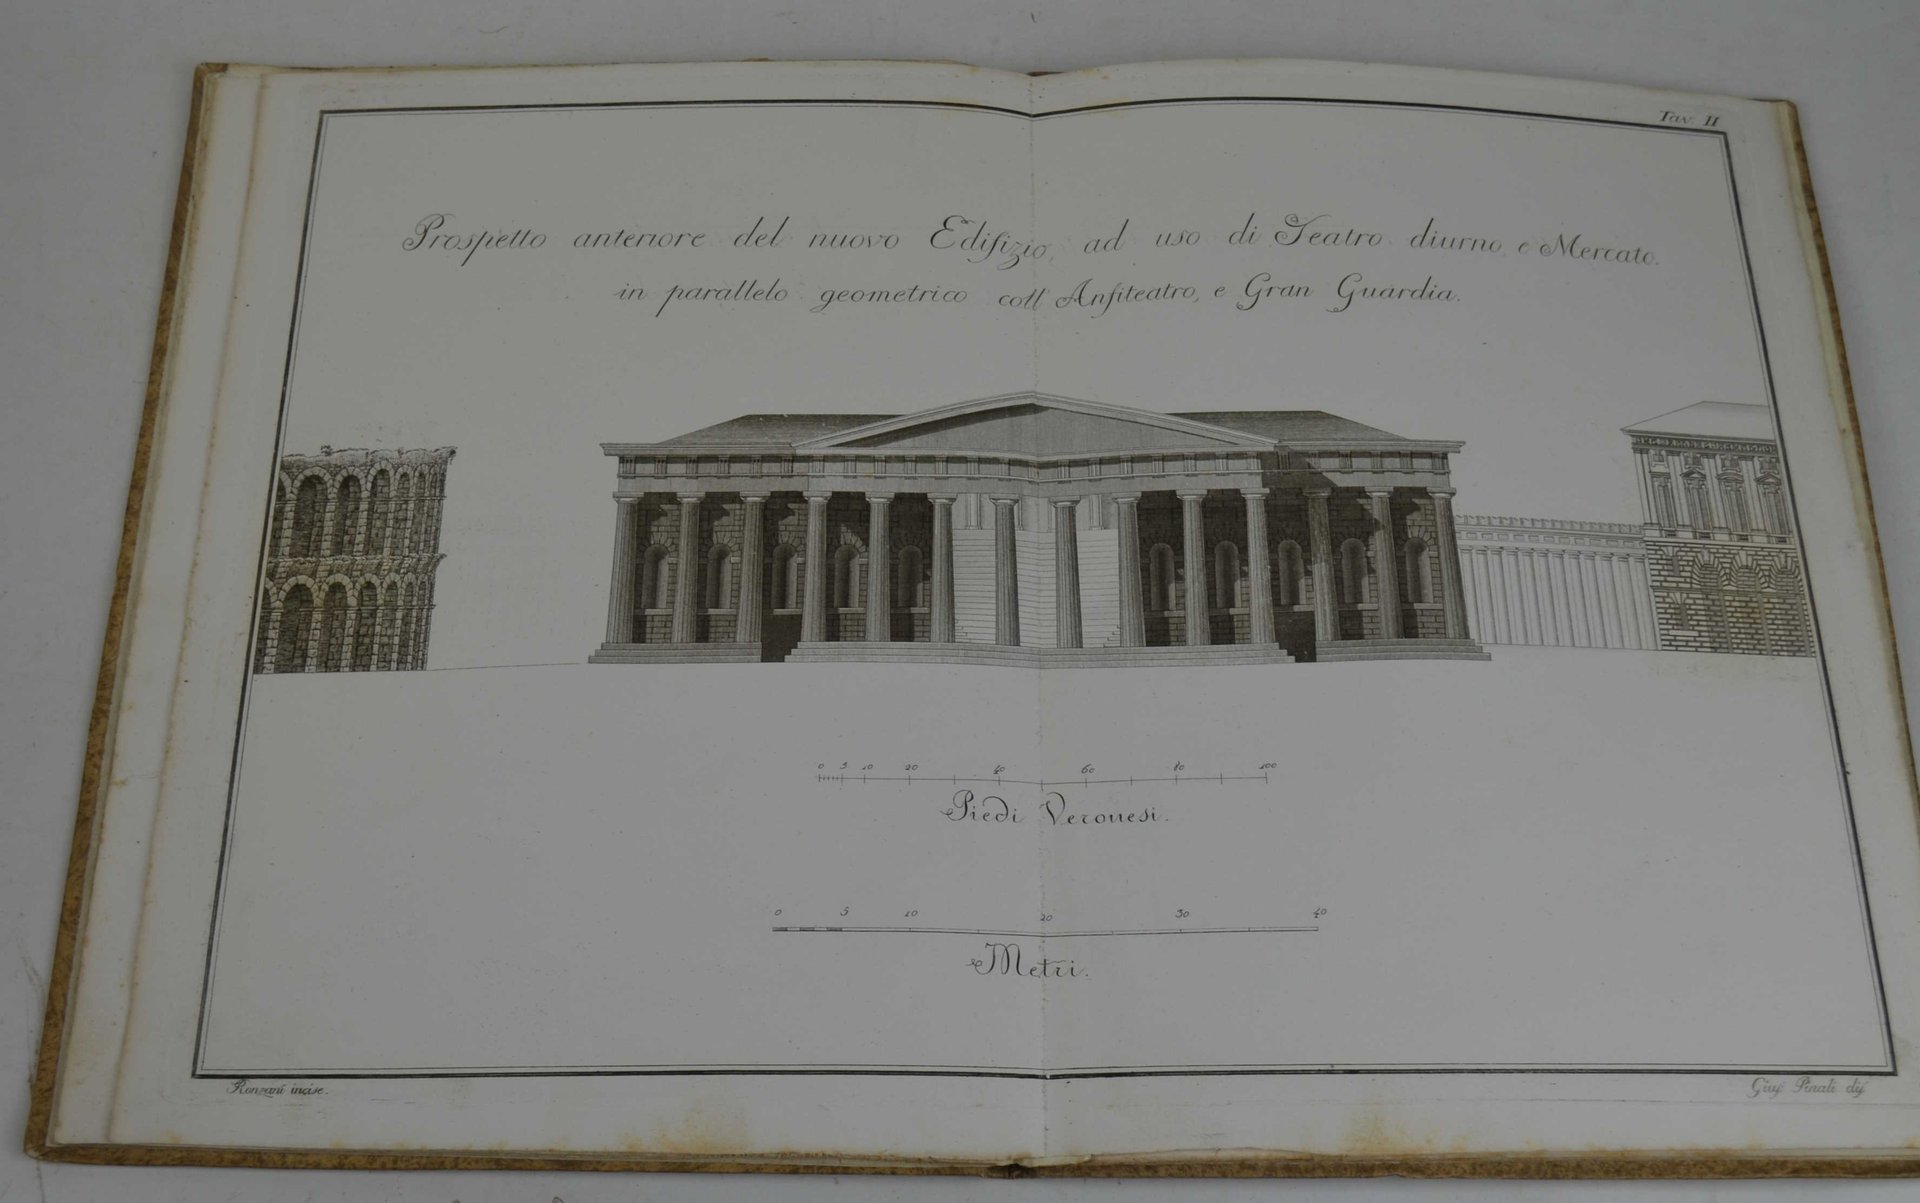 Tav. II
Prospetto anteriore del nuovo Edifizio, ad uso di Teatro diurno, e Mercato.
in parallelo geometrico coll Anfiteatro, e Gran Guardia.
0 5 10 20 40 60 80 100
Piedi Veronesi.
0 5 10 20 30 40
Metri.
Ronzani incise.
Pinali